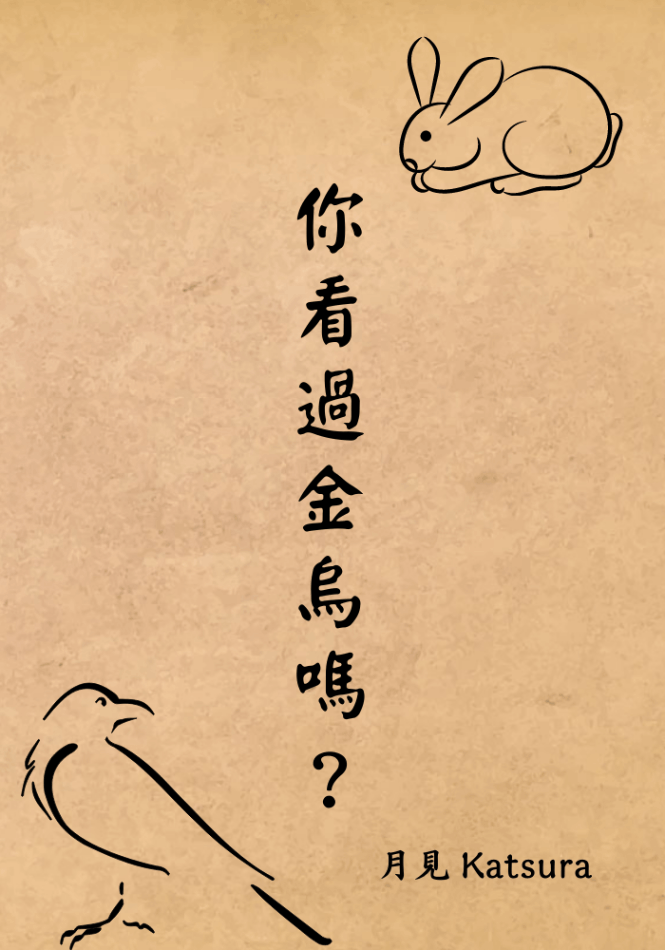 你看過金烏嗎？
月見 Katsura